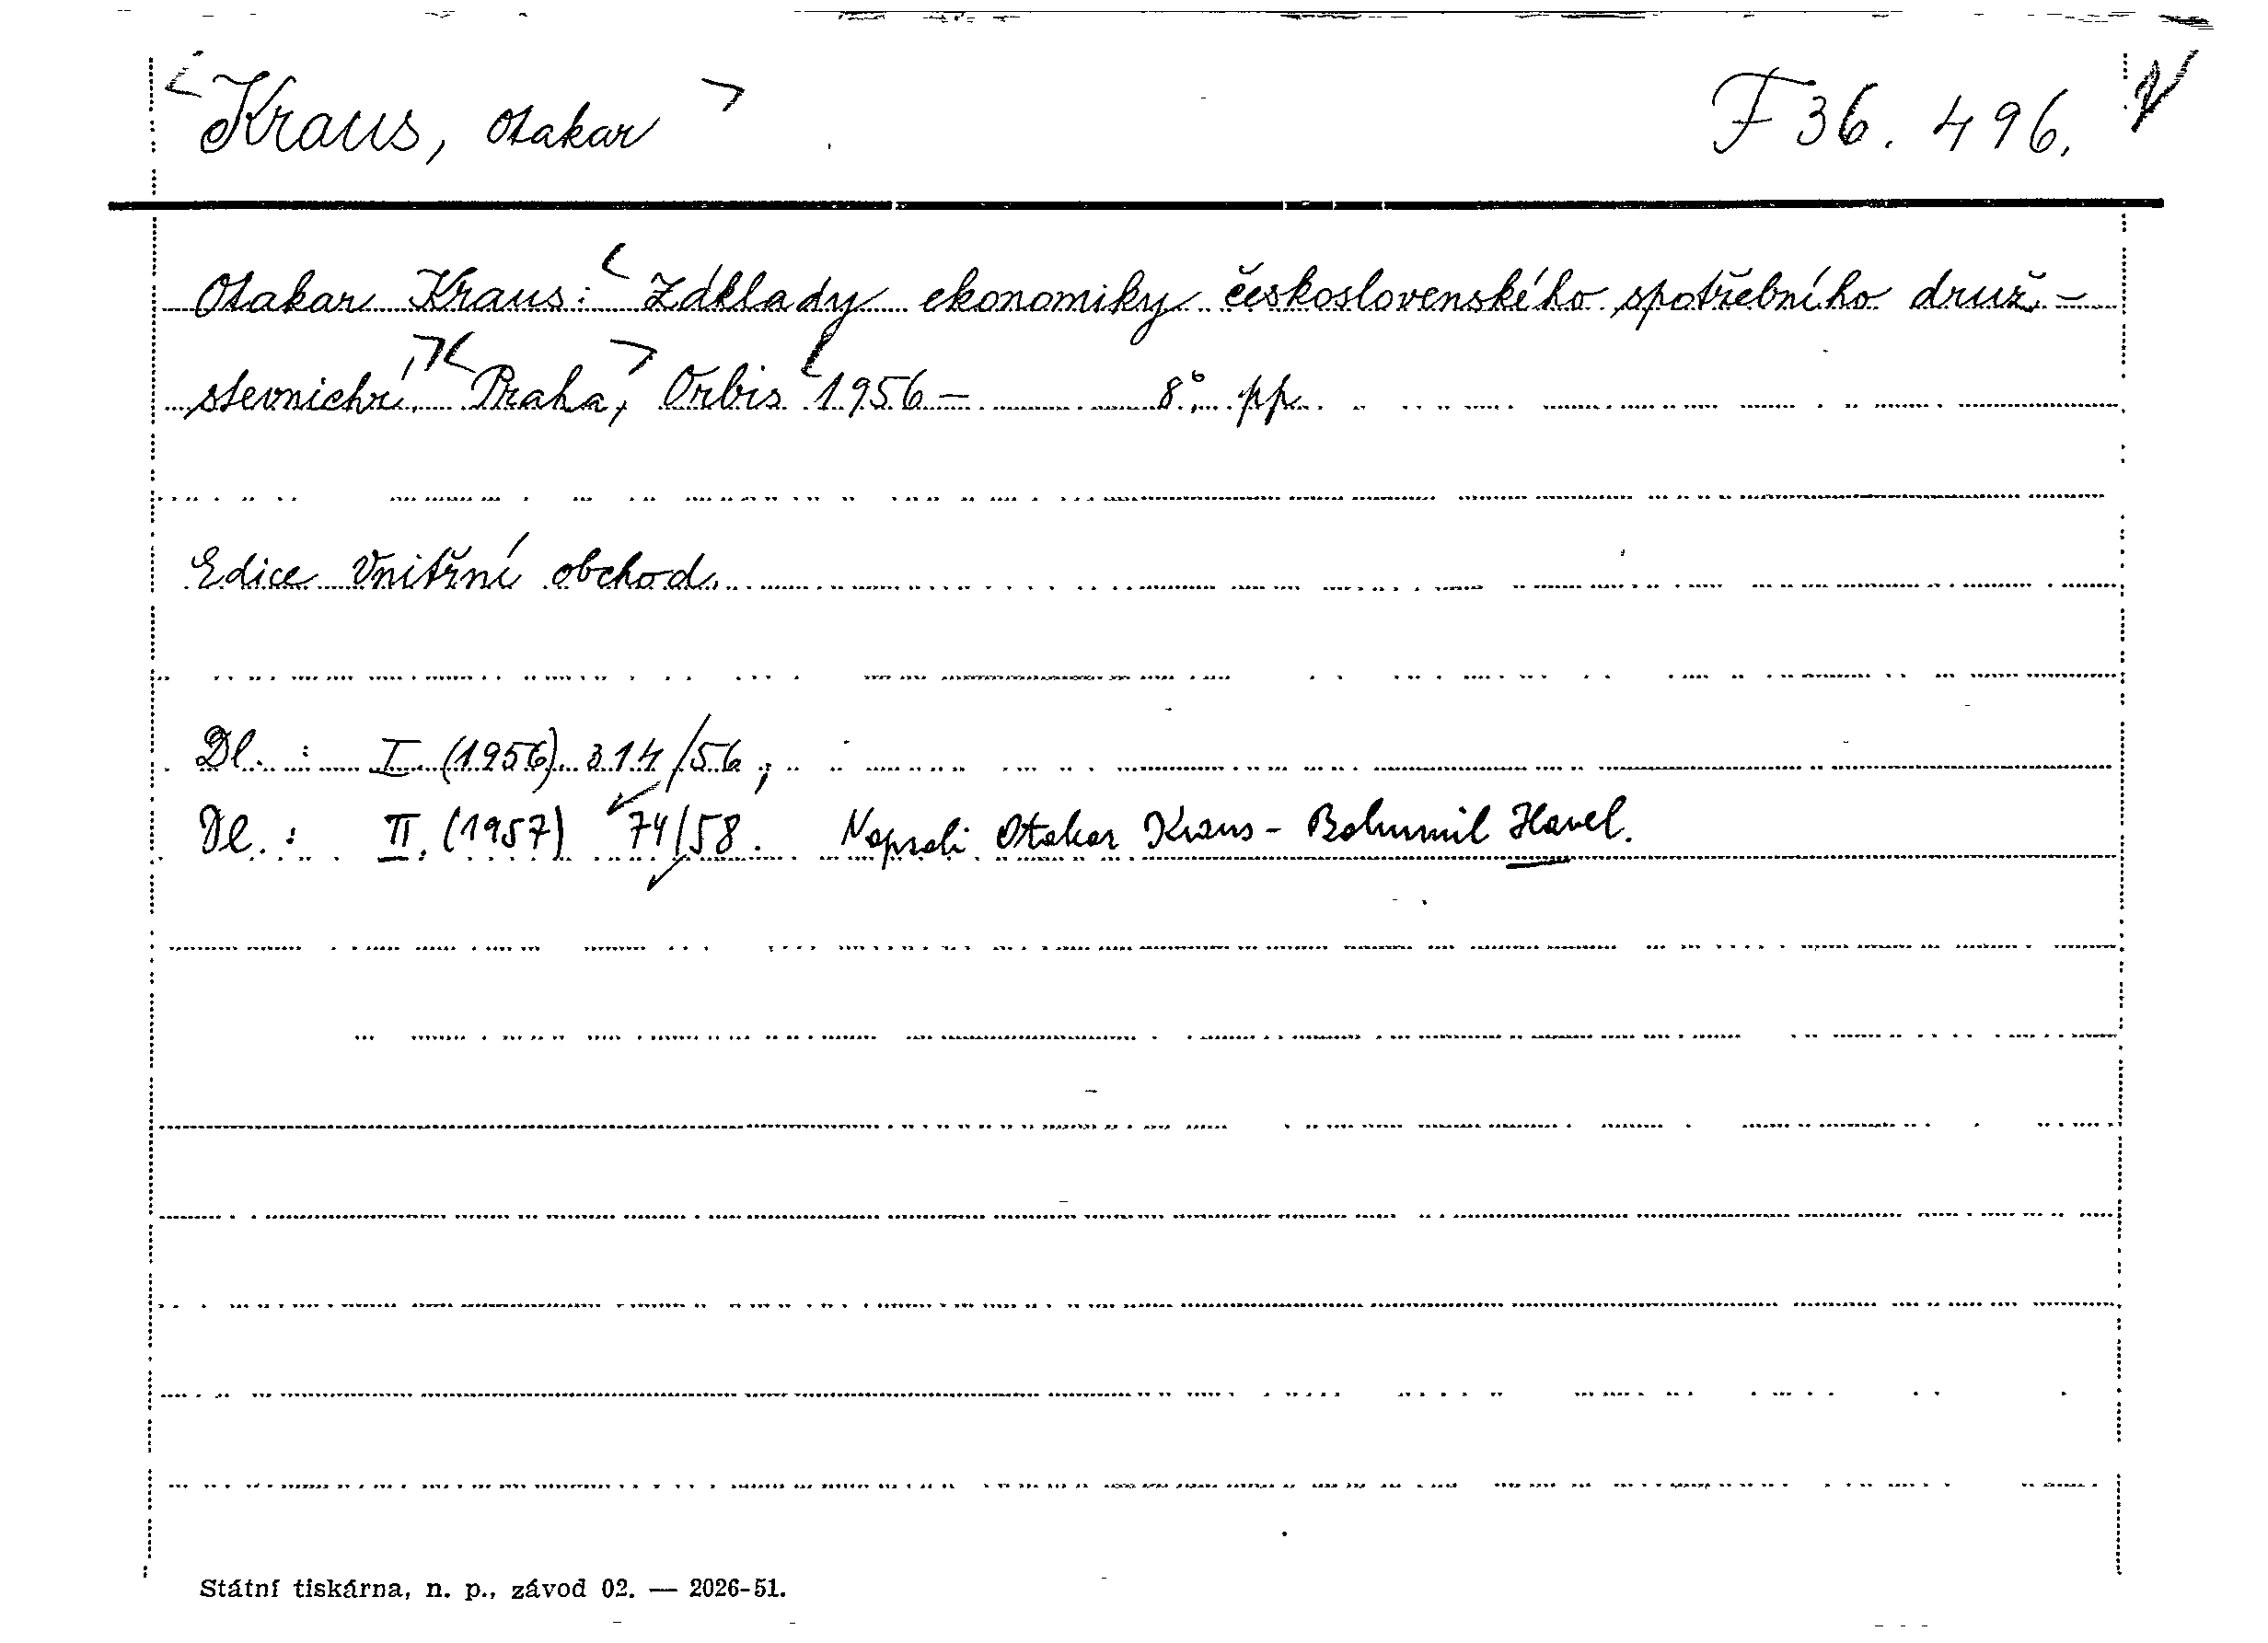 <Kraus, Otakar> F 36.496.
Otakar Kraus: <Základy ekonomiky československého spotřebního druž-
stevnictví.><Praha,> Orbis <1956- 8°. pp.
Edice Vnitřní obchod.
Dl. : I. (1956) 314/56;
Dl. : II. (1957) 74/58. Napsali Otakar Kraus - Bohumil Havel.
Státní tiskárna, n. p., závod 02. — 2026-51.